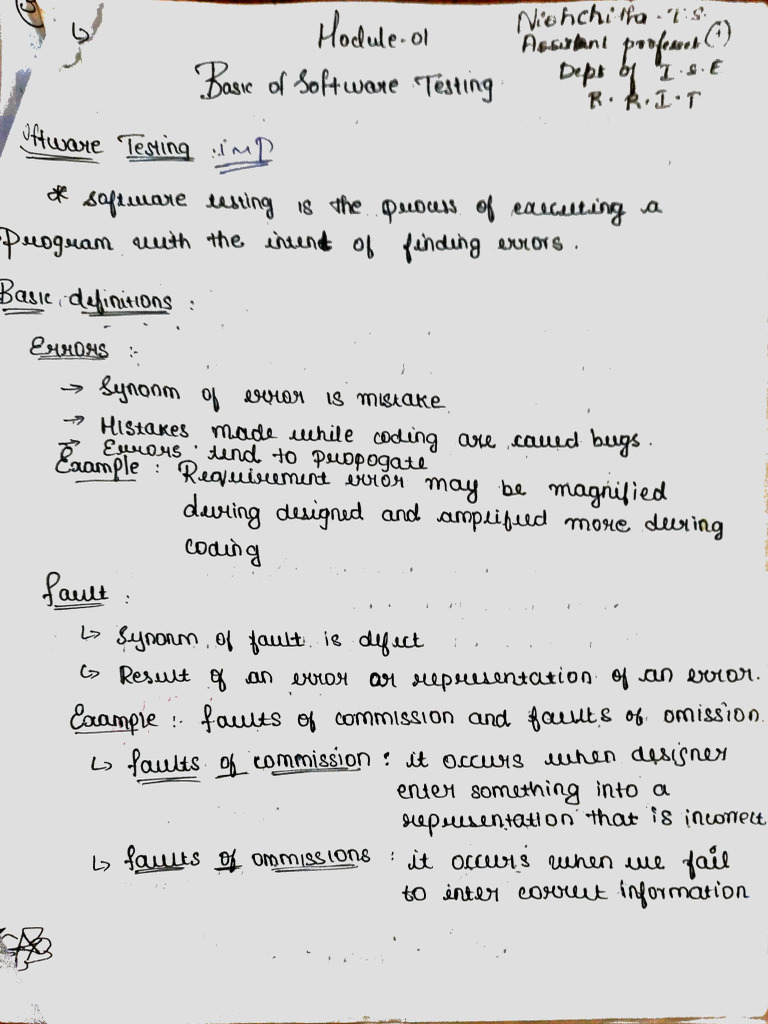 Module-01
Nishchitha. T.S.
Assistant professor (1)
Dept of I.S.E
R.R.I.T
Basic of Software Testing
Software Testing : imp
* Software testing is the process of executing a
Program with the intent of finding errors.
Basic definitions :
Errors :-
→ Synonm of error is mistake
→ Mistakes made while coding are called bugs.
→ Errors tend to propogate
Example : Requirement error may be magnified
during designed and amplified more during
coding
fault :
↳ Synonm of fault is defect
↳ Result of an error or representation of an error.
Example :- faults of commission and faults of omission
↳ faults of commission : it occurs when designer
enter something into a
representation that is incorrect
↳ faults of ommissions : it occurs when we fail
to inter correct information